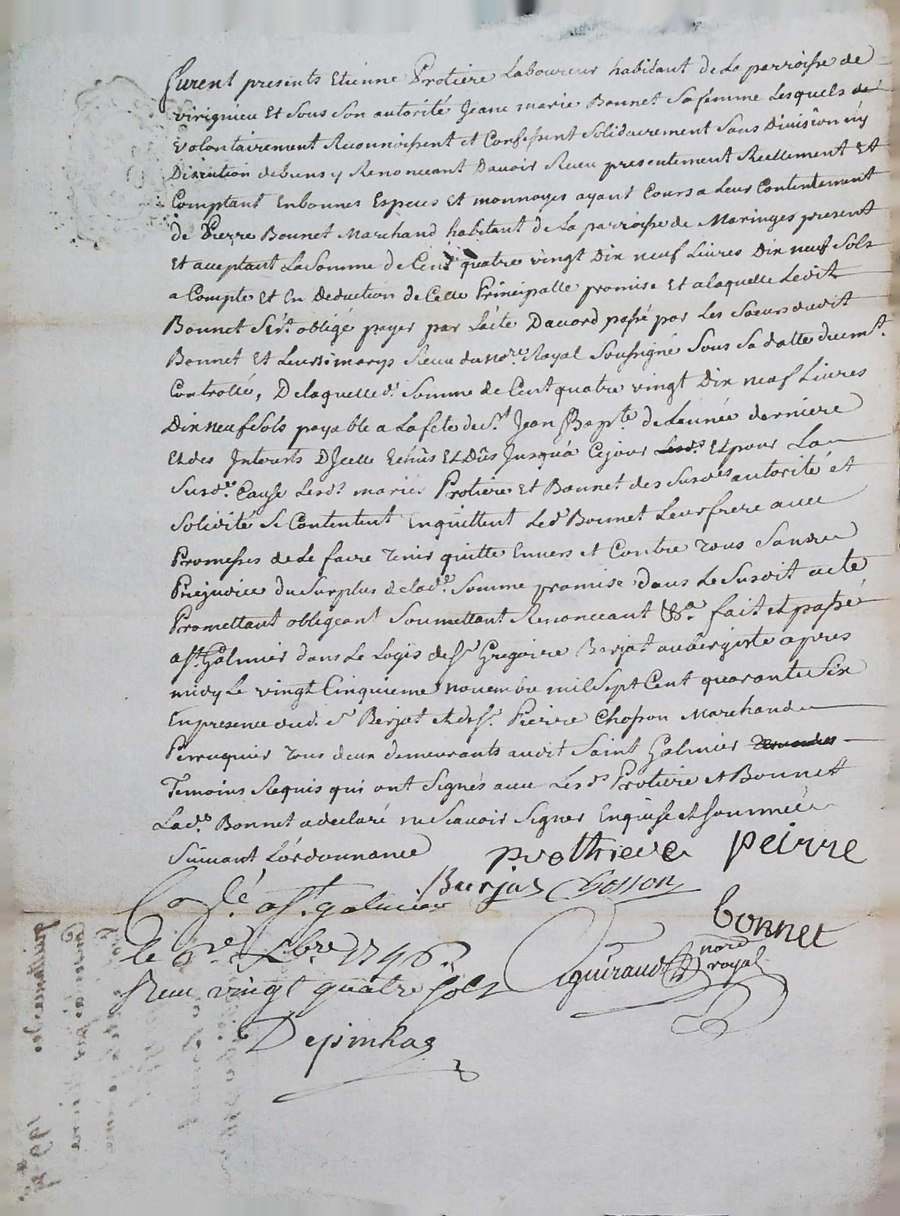 furent presents Etienne Protiere Laboureur habitant de La parroisse de
virignieu Et Sous Son autorité Jeane marie Bonnet Sa femme Lesquels de
volontairement Reconnoissent et Confessent Solidairement Sans Division ny
Discution de biens y Renonceant Davoir Receu presentement Reellement Et
Comptant En bonnes Especes Et monnoyes ayant Cours a Leur Contentement
de Pierre Bonnet Marchand habitant de La parroisse de Maringes present
Et aceptant La Somme de Cent quatre vingt Dix neuf Livres Dix neuf Sols
a Compte Et En Deduction de Celle Principalle promise Et a laquelle Ledit
Bonnet S'est obligé payer par L'acte Dacord passé par Les Soeurs dudit
Bonnet Et Leurs marys Receu du nore. Royal Soussigné Sous Sa datte duemt.
Controllé, De laquelle de. Somme de Cent quatre vingt Dix neuf Livres
Dix neuf Sols payable a La fete de St. Jean Bapte. de L'année derniere
Et des Interets D'Jcelle Echûs Et Dûs Jusqu'a Ce jour Et pour La
Susde. Cause Lesds. mariés Protiere Et Bonnet des Susdes autorité et
Solidité Se Contentent En quittent Led. Bonnet Leur frere avec
Promesses de Le faire Tenir quitte Envers et Contre Tous Sans
Prejudice du Surplus de lade. Somme promise dans Le Susdit acte
Promettant obligeant Soumettant Renonceant &a. fait et passé
a St. Galmier dans Le Logis de Sr. Gregoire Berjat aubergiste apres
midy Le vingt Cinquieme novembre mil Sept Cent quarante Six
En presence dud. Sr. Berjat Et de Sr. Pierre Chosson Marchand
Perruquier Tous deux demeurants audit Saint Galmier
Temoins Requis qui ont Signés avec Lesds. Protiere et Bonnet
Lade. Bonnet a declaré ne Scavoir Signer Enquise et Sommée
Suivant L'ordonnance
prothiere peirre
Berjat Chosson
bonnet
Conlé. a St. galmier
le 6e. Xbre 1746
Receu vingt quatre Sols
guiraud nore royal
Depinhac